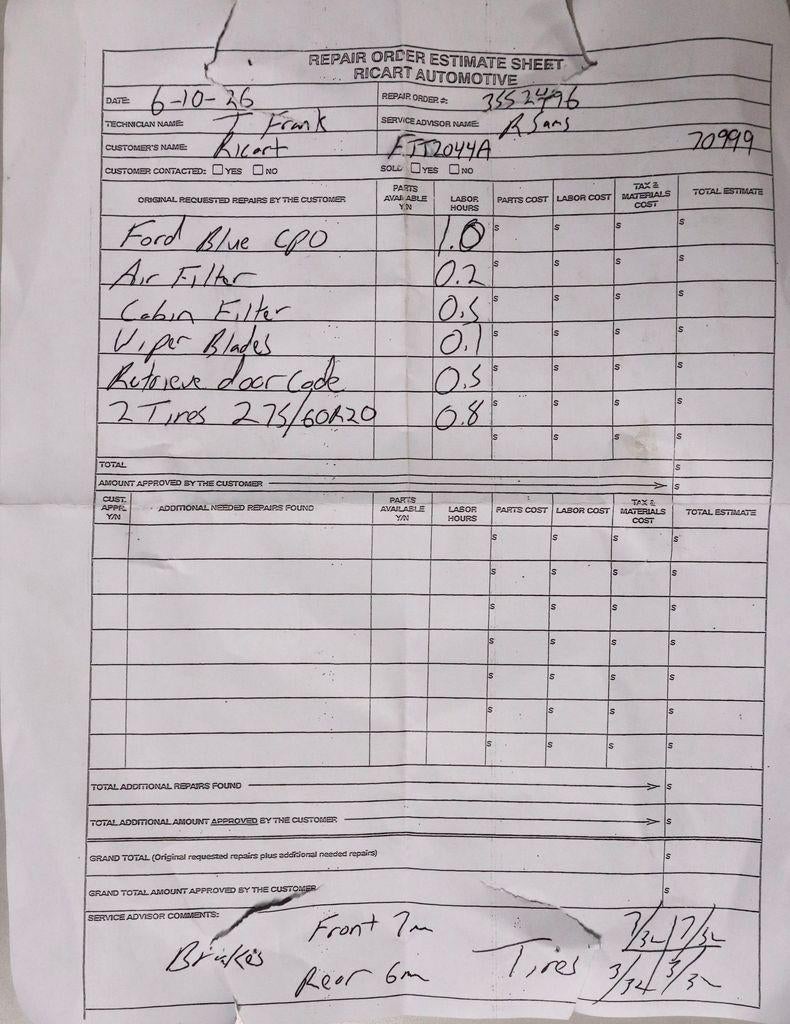 REPAIR ORDER ESTIMATE SHEET
RICART AUTOMOTIVE
DATE: 6-10-26 REPAIR ORDER #: 3552496
TECHNICIAN NAME: T Frank SERVICE ADVISOR NAME: R Sams
CUSTOMER'S NAME: Ricart FJT2044A 70999
CUSTOMER CONTACTED: ☐ YES ☐ NO SOLD ☐ YES ☐ NO
ORIGINAL REQUESTED REPAIRS BY THE CUSTOMER PARTS AVAILABLE Y/N LABOR HOURS PARTS COST LABOR COST TAX & MATERIALS COST TOTAL ESTIMATE
Ford Blue CPO 1.0 $ $ $ $
Air Filter 0.2 $ $ $ $
Cabin Filter 0.5 $ $ $ $
Wiper Blades 0.1 $ $ $ $
Retrieve door code 0.5 $ $ $ $
2 Tires 275/60R20 0.8 $ $ $ $
$ $ $ $
TOTAL $
AMOUNT APPROVED BY THE CUSTOMER $
CUST. APPR. Y/N ADDITIONAL NEEDED REPAIRS FOUND PARTS AVAILABLE Y/N LABOR HOURS PARTS COST LABOR COST TAX & MATERIALS COST TOTAL ESTIMATE
$ $ $ $
$ $ $ $
$ $ $ $
$ $ $ $
$ $ $ $
$ $ $ $
$ $ $ $
TOTAL ADDITIONAL REPAIRS FOUND $
TOTAL ADDITIONAL AMOUNT APPROVED BY THE CUSTOMER $
GRAND TOTAL (Original requested repairs plus additional needed repairs) $
GRAND TOTAL AMOUNT APPROVED BY THE CUSTOMER $
SERVICE ADVISOR COMMENTS:
Brakes Front 7m Tires 7/32 7/32
Rear 6m 3/32 3/32